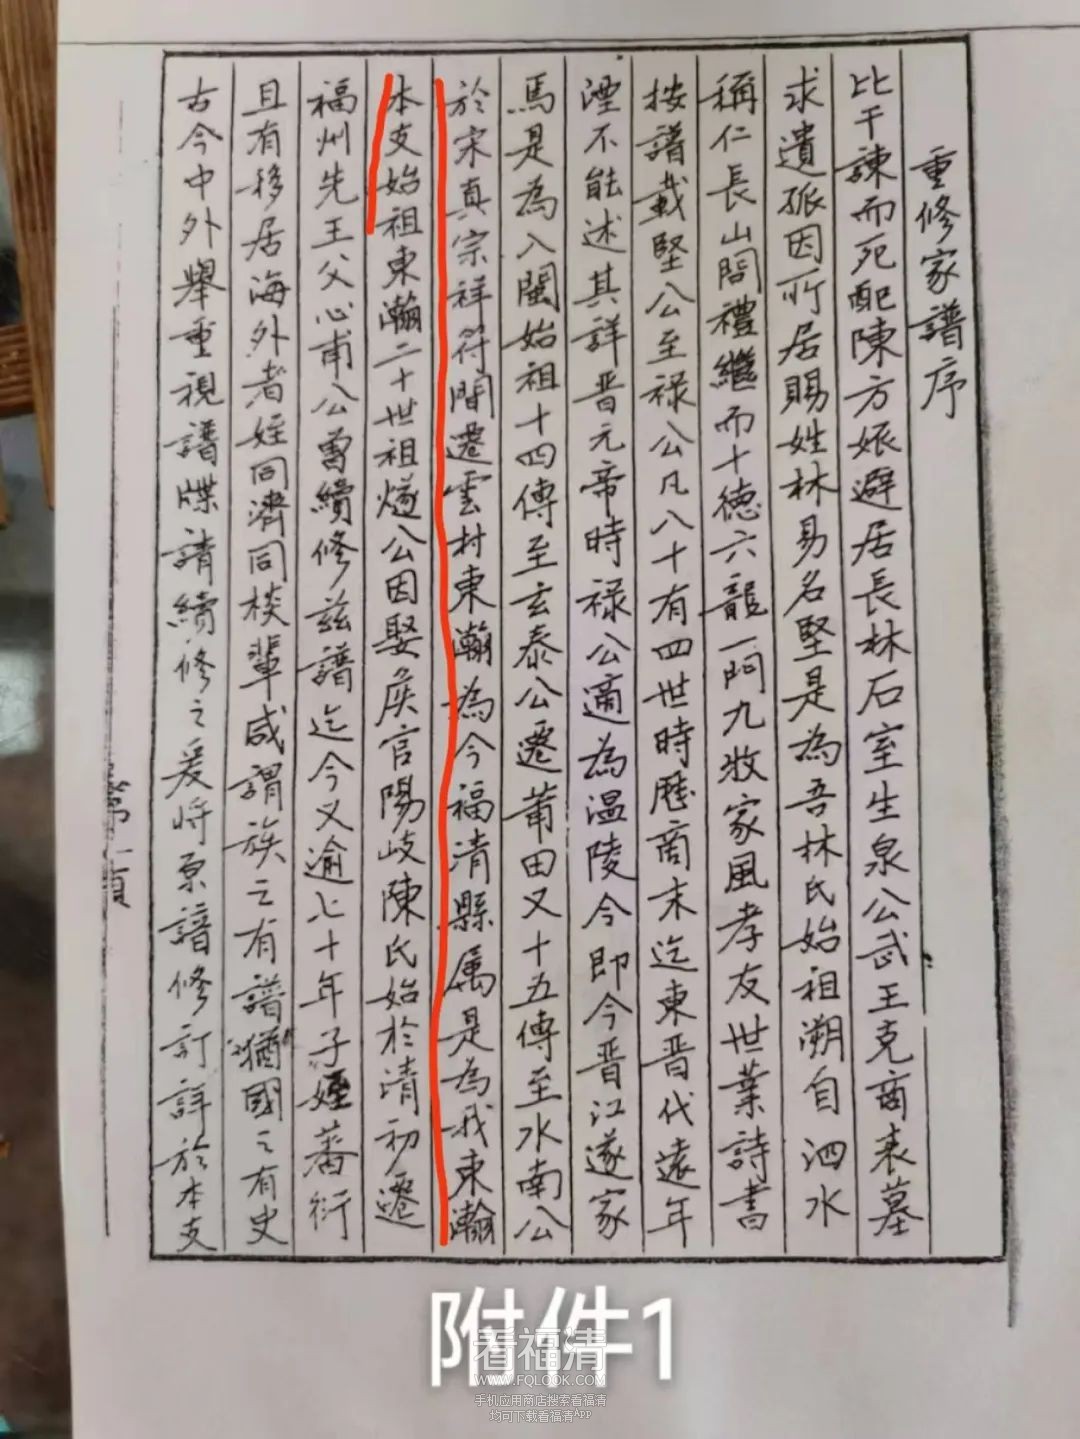 重修家譜序
比干諫而死配陳方娠避居長林石室生泉公武王克商表墓
求遺孤因所居賜姓林易名堅是為吾林氏始祖溯自泗水
稱仁長山問禮繼而十德六龍一門九牧家風孝友世業詩書
按譜載堅公至禄公凡八十有四世時歷商末迄東晋代遠年
湮不能述其詳晋元帝時禄公適為温陵令即今晋江遂家
馬是為入閩始祖十四傳至玄泰公遷莆田又十五傳至水南公
於宋真宗祥符間遷雲村東瀚為今福清縣属是為我東瀚
本支始祖東瀚二十世祖燧公因娶侯官陽岐陳氏始於清初遷
福州先王父心甫公曾續修兹譜迄今又逾七十年子姪蕃衍
且有移居海外者姪同濟同棪輩咸謂族之有譜猶國之有史
古今中外舉重視譜牒請續修之爰將原譜修訂詳於本支
第一頁
附件1
看福清
WWW.FQLOOK.COM
手机应用商店搜索看福清
均可下载看福清App